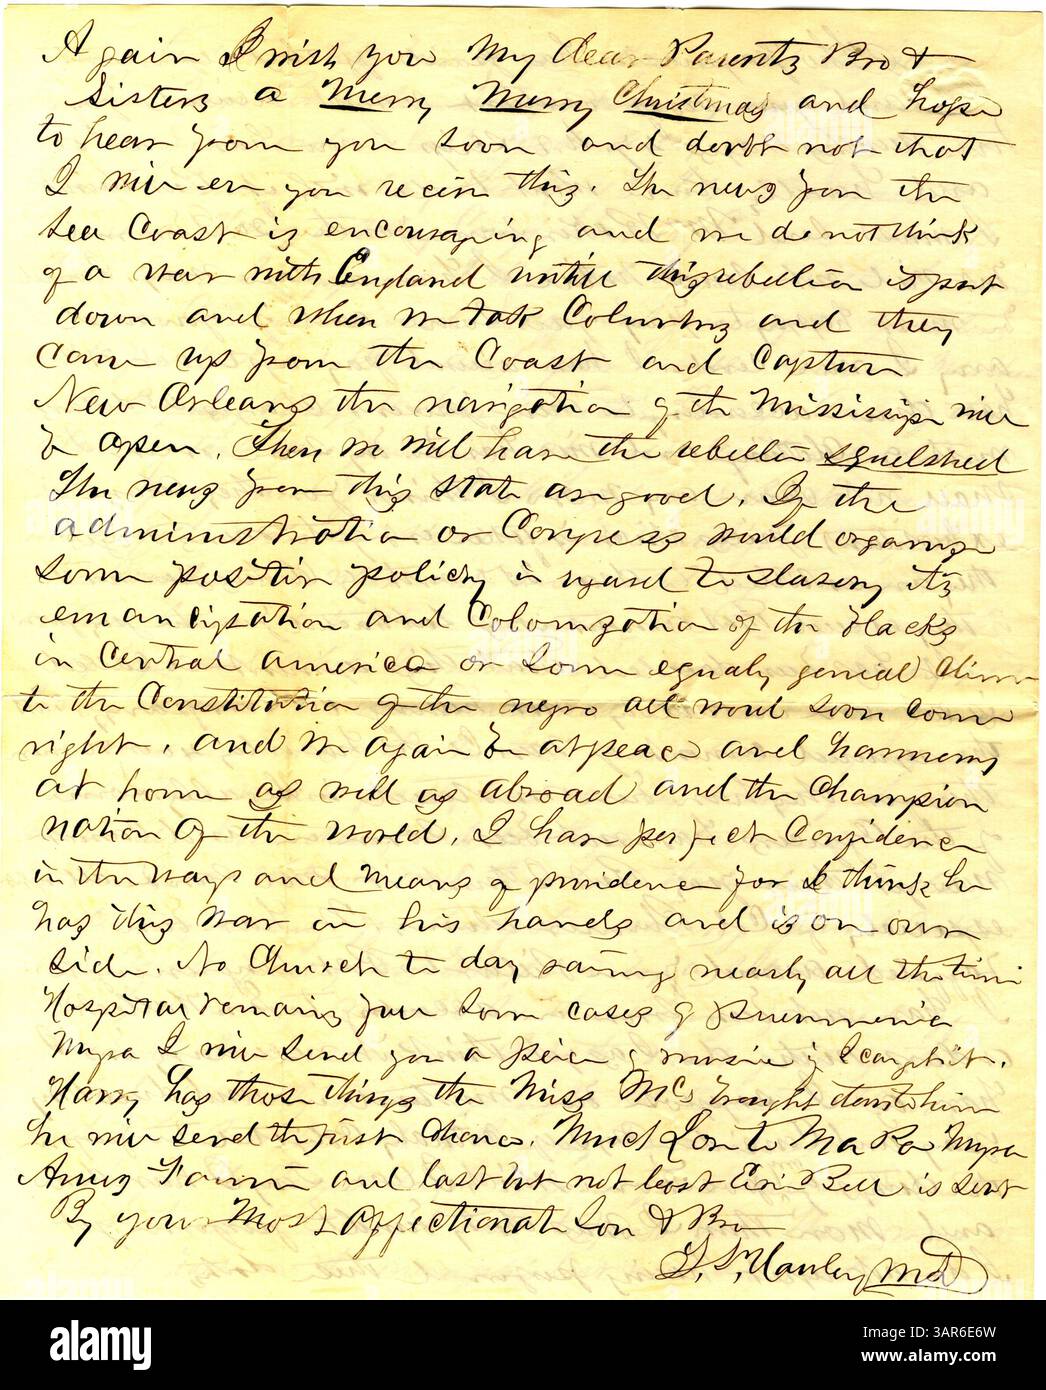 Again I wish you My dear Parents Bro &
Sisters a Merry Merry Christmas and hope
to hear from you soon and doubt not that
I will ere you receive this. The news from the
Sea Coast is encouraging and we do not think
of a war with England untill this rebellion is put
down and when we take Columbus and they
come up from the Coast and Capture
New Orleans the navigation of the Mississippi will
be open. Then we will have the rebellion squelshed
The news from this state are good. If the
administration or Congress would organize
some positive policy in regard to slavery its
emancipation and Colonization of the blacks
in Central america or some equaly genial clime
to the Constitution of the negro all would soon come
right, and we again be at peace and harmony
at home as well as abroad and the Champion
nation of the world. I have perfect Confidence
in the ways and means of providence for I think he
has this war in his hands and is on our
side. No Church to day raining nearly all the time
Hospital remains full some cases of pneumonia
Myra I will send you a piece of music if I can get it.
Harry has those things the Miss Mcs brought down to him
he will send the first chance. Much Love to Ma Pa Myra
Amus Fannie and last but not least Eva Bell is sent
By your Most Affectionate Son & Bro
MD
alamy
Image ID: 3AR6E6W
www.alamy.com